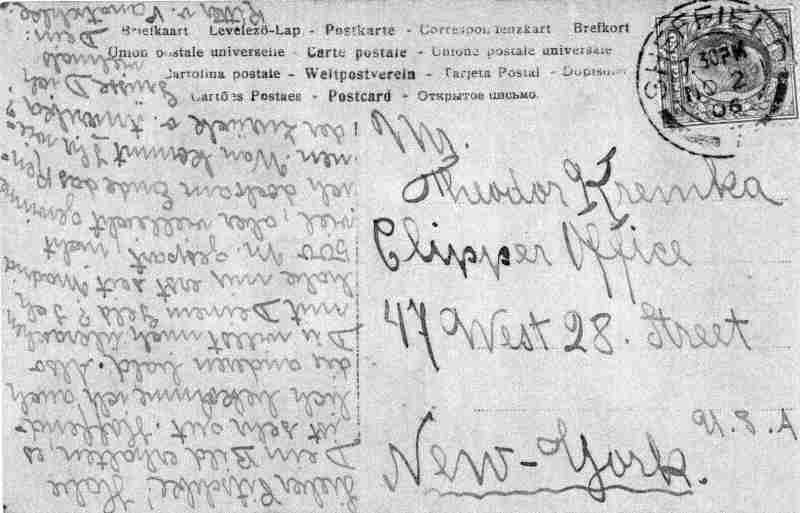 Briefkaart Levelező-Lap - Postkarte - Correspondenzkart Brefkort
Union postale universelle - Carte postale - Unione postale universale
Cartolina postale - Weltpostverein - Tarjeta Postal - Dopisnice
Cartões Postaes - Postcard - Открытое письмо.
SHEFFIELD
7.30PM
NO 2
06
Mr.
Theodor Kremka
Clipper Office
47 West 28. Street
New-York.
U.S.A
Lieber Habe
Dein Bild erhalten, es
ist sehr gut. Hoffend-
lich bekomme ich auch
die anderen bald. Also
Du willst mich
mit Deinem Geld? Ich
habe nun erst seit Madrid
500 M. gespart, nicht
viel, aber vielleicht gewinne
ich doch am Ende das Ren-
nen. Wan kommst
der zurück v. Amerika?
Grüsse Dich
vielmals
Dein
Ritter v.